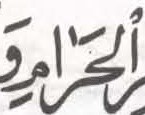 الْحَرَامِ وَ